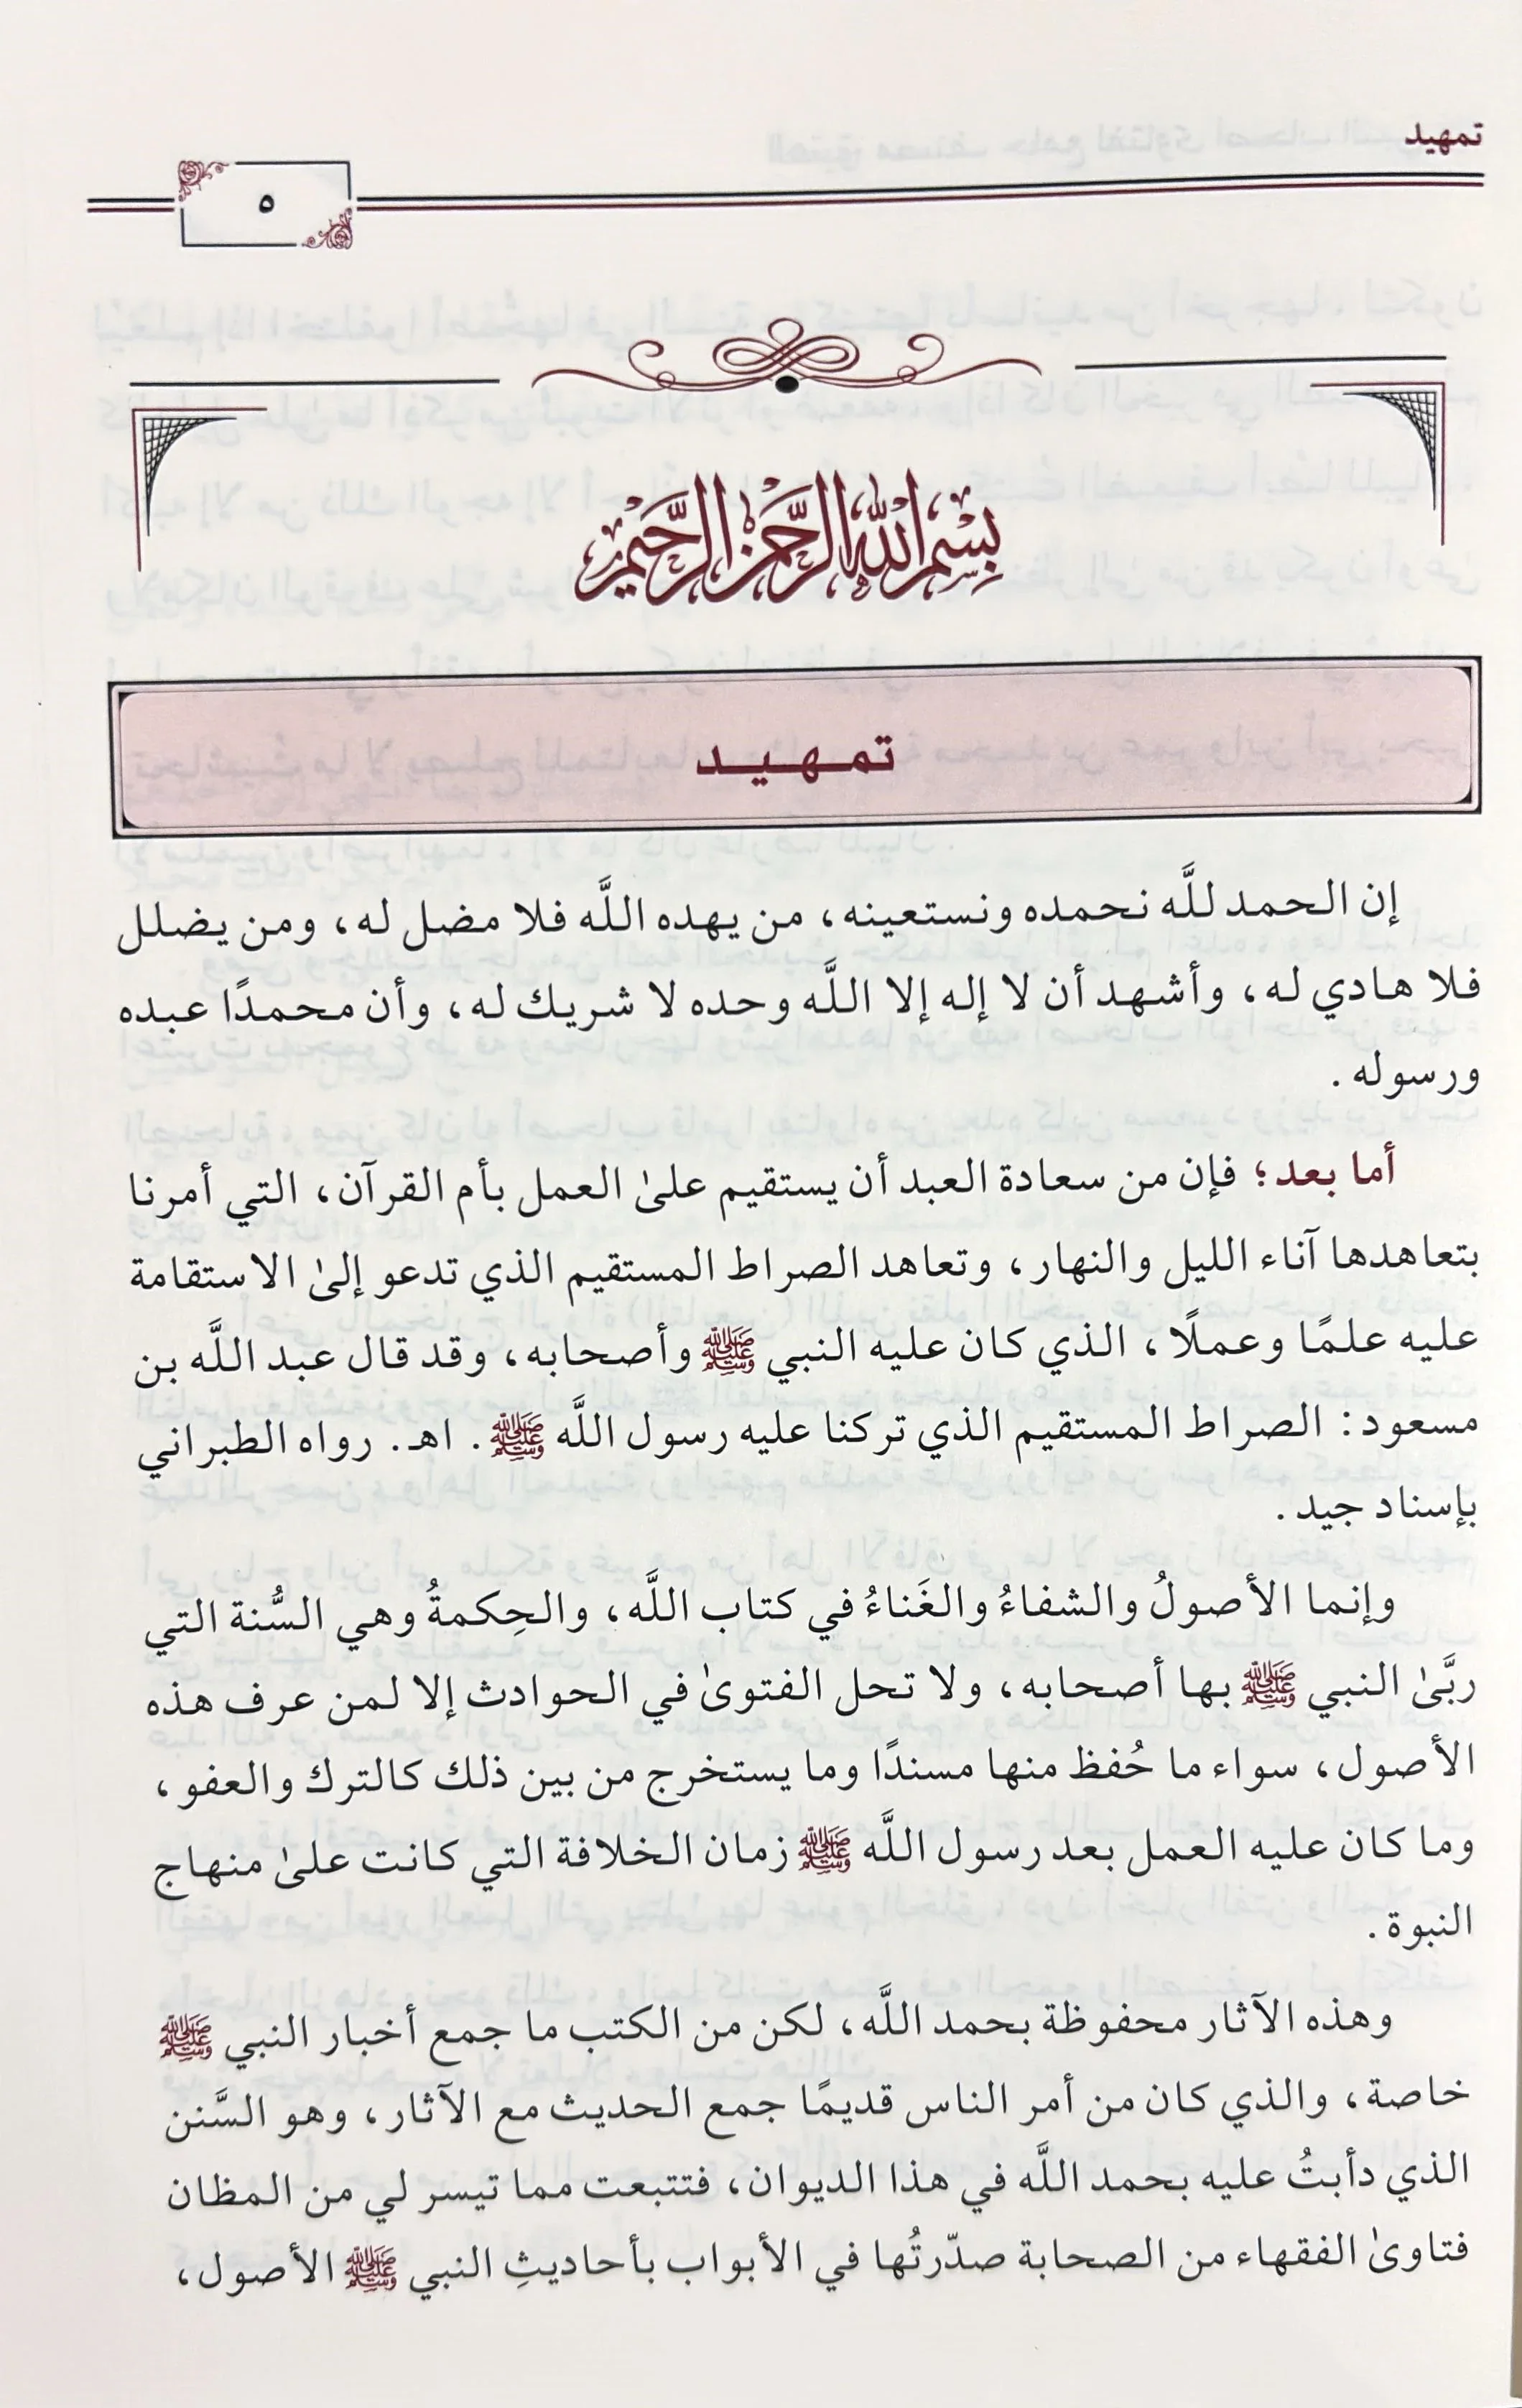 تمهيد
٥
بسم الله الرحمن الرحيم
تمهيد
إن الحمد للَّه نحمده ونستعينه، من يهده اللَّه فلا مضل له، ومن يضلل
فلا هادي له، وأشهد أن لا إله إلا اللَّه وحده لا شريك له، وأن محمدًا عبده
ورسوله.
أما بعد؛ فإن من سعادة العبد أن يستقيم علىٰ العمل بأم القرآن، التي أمرنا
بتعاهدها آناء الليل والنهار، وتعاهد الصراط المستقيم الذي تدعو إلىٰ الاستقامة
عليه علمًا وعملًا، الذي كان عليه النبي ﷺ وأصحابه، وقد قال عبد اللَّه بن
مسعود: الصراط المستقيم الذي تركنا عليه رسول اللَّه ﷺ. اهـ. رواه الطبراني
بإسناد جيد.
وإنما الأصولُ والشفاءُ والغَناءُ في كتاب اللَّه، والحِكمةُ وهي السُّنة التي
ربَّىٰ النبي ﷺ بها أصحابه، ولا تحل الفتوىٰ في الحوادث إلا لمن عرف هذه
الأصول، سواء ما حُفظ منها مسندًا وما يستخرج من بين ذلك كالترك والعفو،
وما كان عليه العمل بعد رسول اللَّه ﷺ زمان الخلافة التي كانت علىٰ منهاج
النبوة.
وهذه الآثار محفوظة بحمد اللَّه، لكن من الكتب ما جمع أخبار النبي ﷺ
خاصة، والذي كان من أمر الناس قديمًا جمع الحديث مع الآثار، وهو السَّنن
الذي دأبتُ عليه بحمد اللَّه في هذا الديوان، فتتبعت مما تيسر لي من المظان
فتاوىٰ الفقهاء من الصحابة صدّرتُها في الأبواب بأحاديثِ النبي ﷺ الأصول،